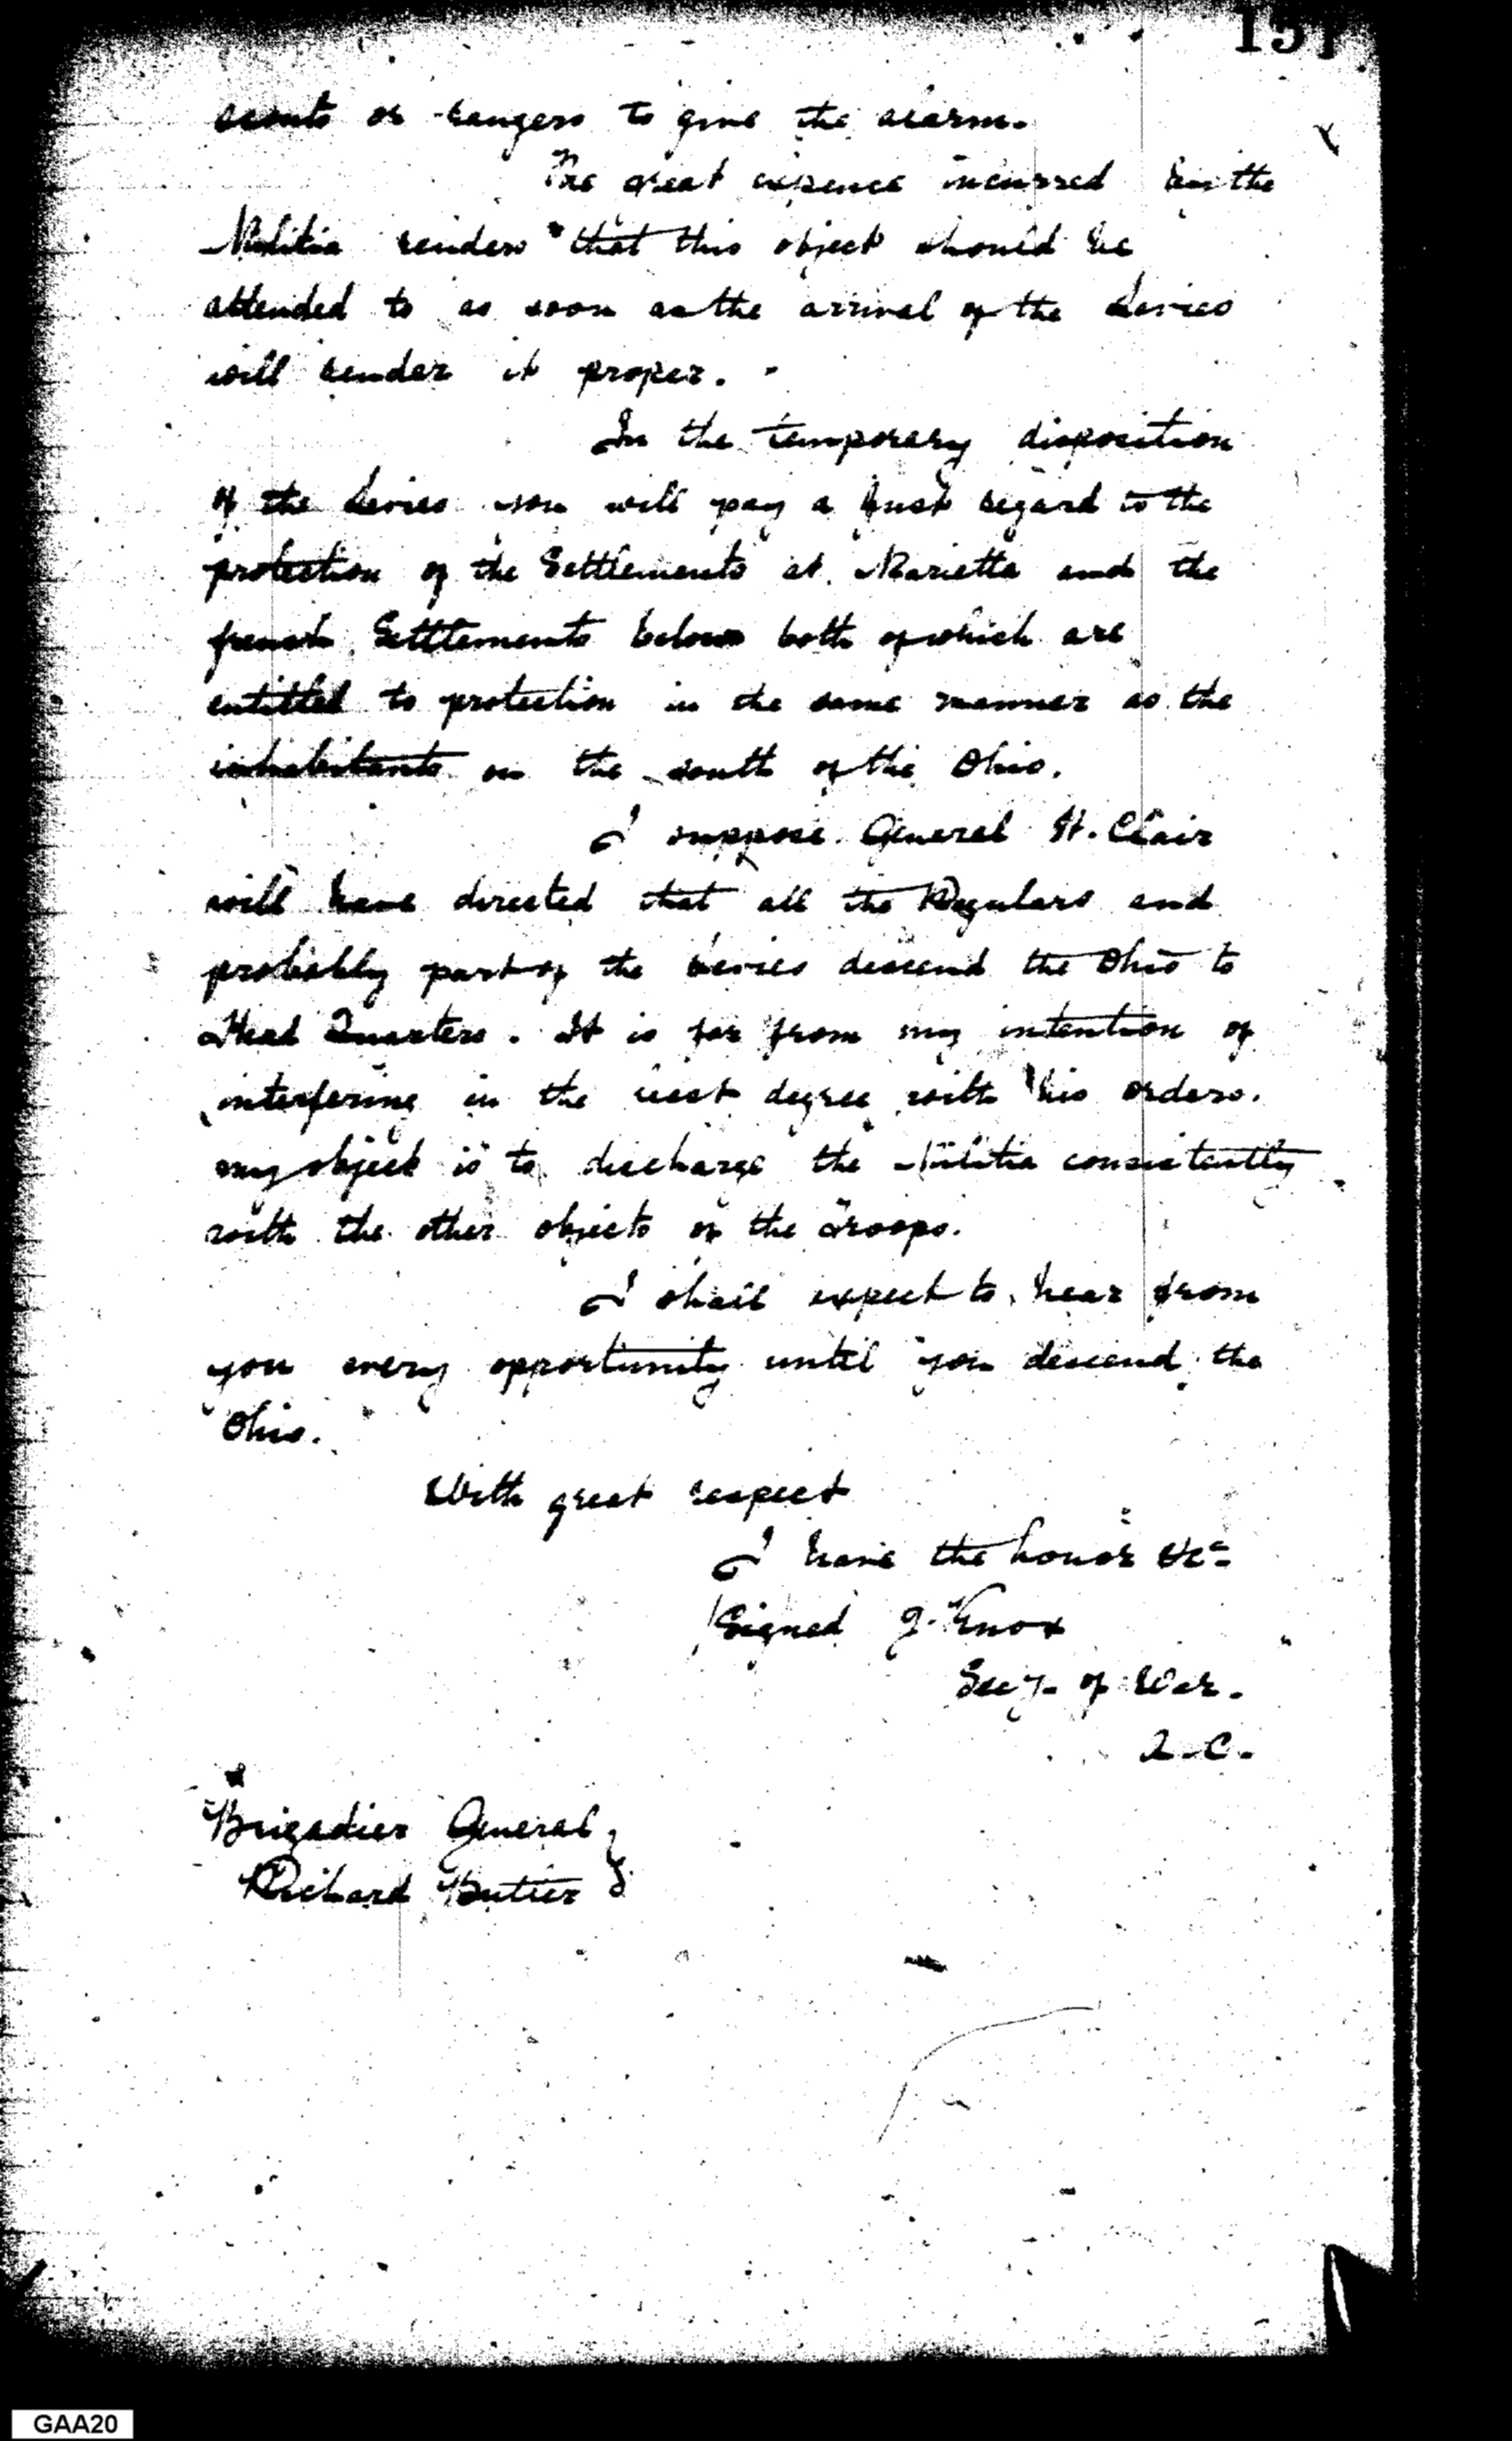 151
scouts or rangers to give the alarm.
The great expence incurred by the
Militia renders that this object should be
attended to as soon as the arrival of the Levies
will render it proper.
In the temporary disposition
of the Levies you will pay a just regard to the
protection of the Settlements at Marietta and the
french Settlements below both of which are
entitled to protection in the same manner as the
inhabitants on the south of the Ohio.
I suppose General St. Clair
will have directed that all the Regulars and
probably part of the Levies descend the Ohio to
Head Quarters. It is far from my intention of
interfering in the least degree with his orders.
my object is to discharge the Militia consistently
with the other objects of the Troops.
I shall expect to hear from
you every opportunity until you descend the
Ohio.
With great respect
I have the honor &c
Signed J. Knox
Secy. of War.
Brigadier General
Richard Butler
GAA20